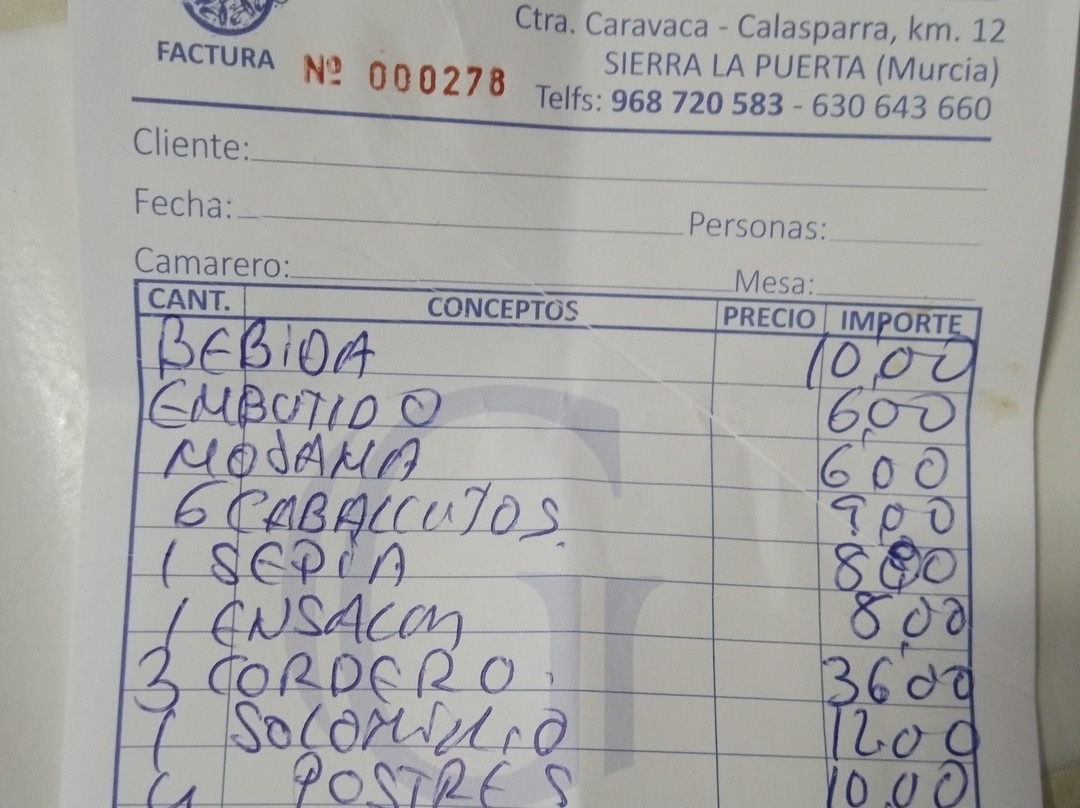 Ctra. Caravaca - Calasparra, km. 12
SIERRA LA PUERTA (Murcia)
FACTURA Nº 000278
Telfs: 968 720 583 - 630 643 660
Cliente:
Fecha: Personas:
Camarero: Mesa:
CANT. CONCEPTOS PRECIO IMPORTE
BEBIDA 10,00
EMBUTIDO 6,00
MOJAMA 6,00
6 CABALLITOS. 9,00
1 SEPIA 8,00
1 8,00
3 CORDERO. 36,00
1 SOLOMILLO 12,00
4 POSTRES 10,00